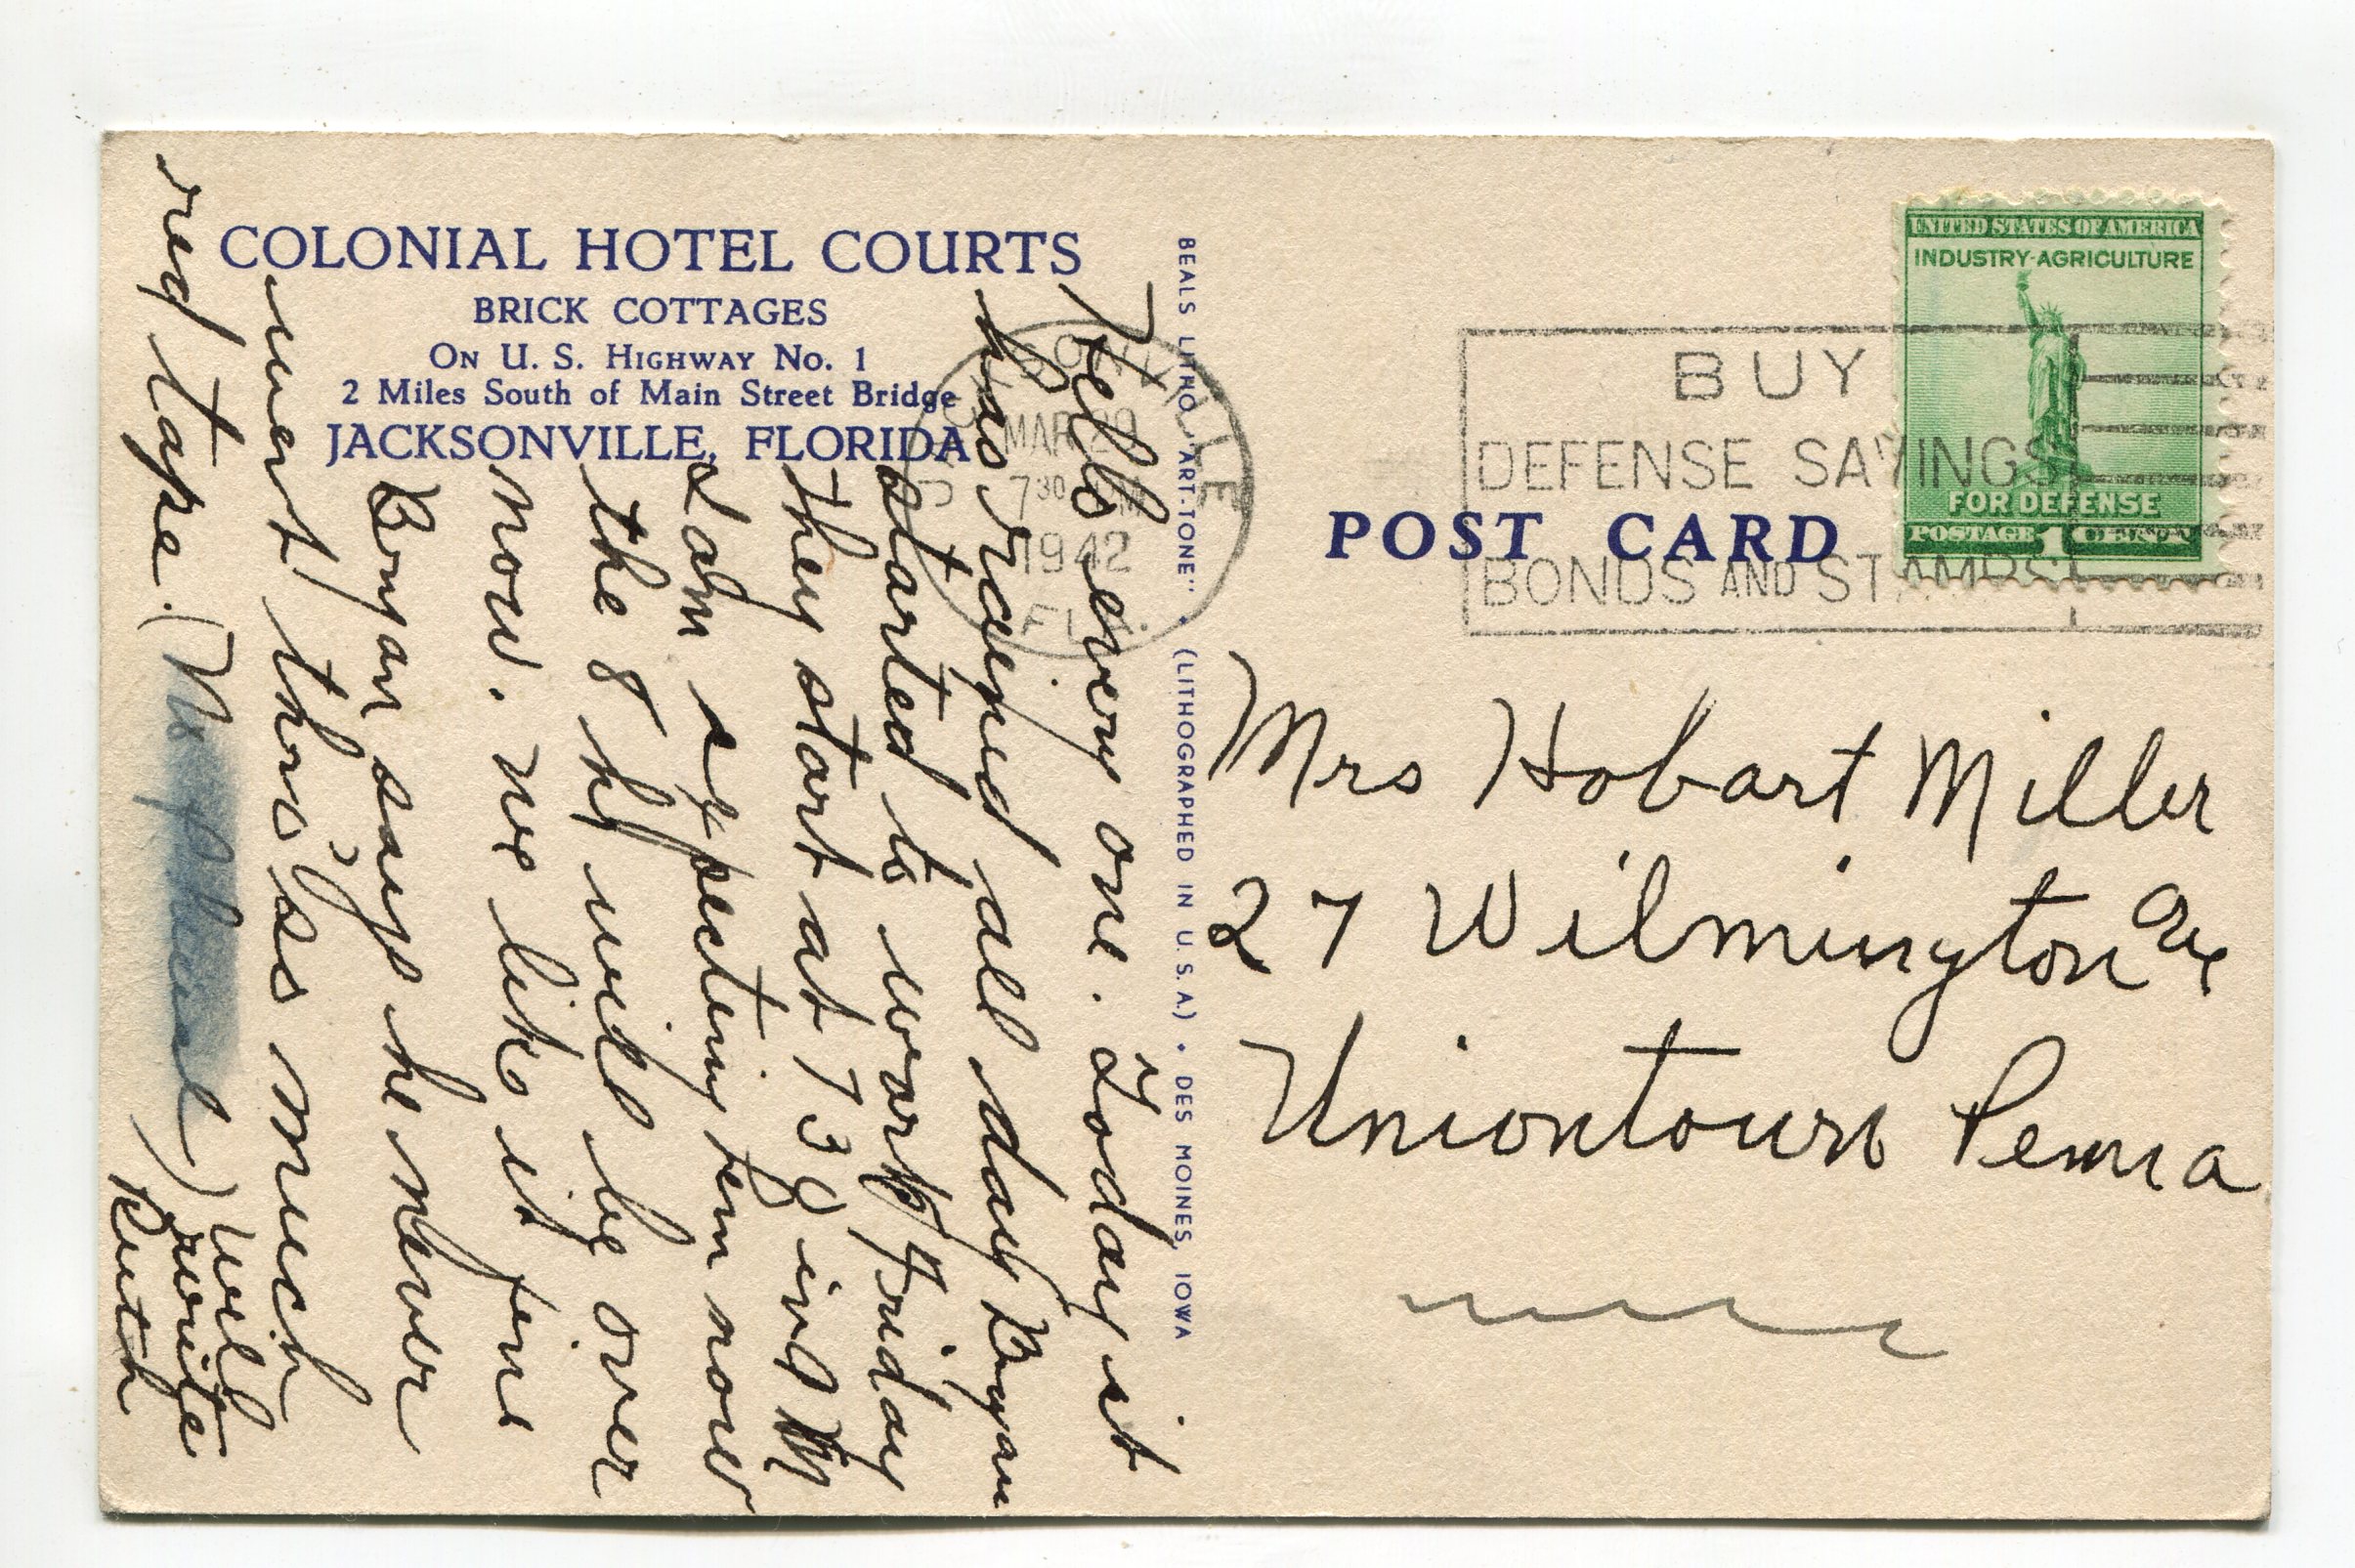 COLONIAL HOTEL COURTS
BRICK COTTAGES
ON U. S. HIGHWAY No. 1
2 Miles South of Main Street Bridge
JACKSONVILLE, FLORIDA
Hello every one. Today it
has rained all day Bryan
started to work Friday
they start at 7 30 in
I am expecting him now
the 8 hr will be over
now. We like it fine
Bryan says he never
went thro' so much
red tape. (
) will
write
Ruth
BEALS LITHO. "ART-TONE" • (LITHOGRAPHED IN U. S. A.) • DES MOINES, IOWA
JACKSONVILLE
MAR 29
7 30 PM
1942
FLA.
BUY
DEFENSE SAVINGS
BONDS AND STAMPS
UNITED STATES OF AMERICA
INDUSTRY-AGRICULTURE
FOR DEFENSE
POSTAGE 1 CENT
POST CARD
Mrs Hobart Miller
27 Wilmington Ave
Uniontown Penna